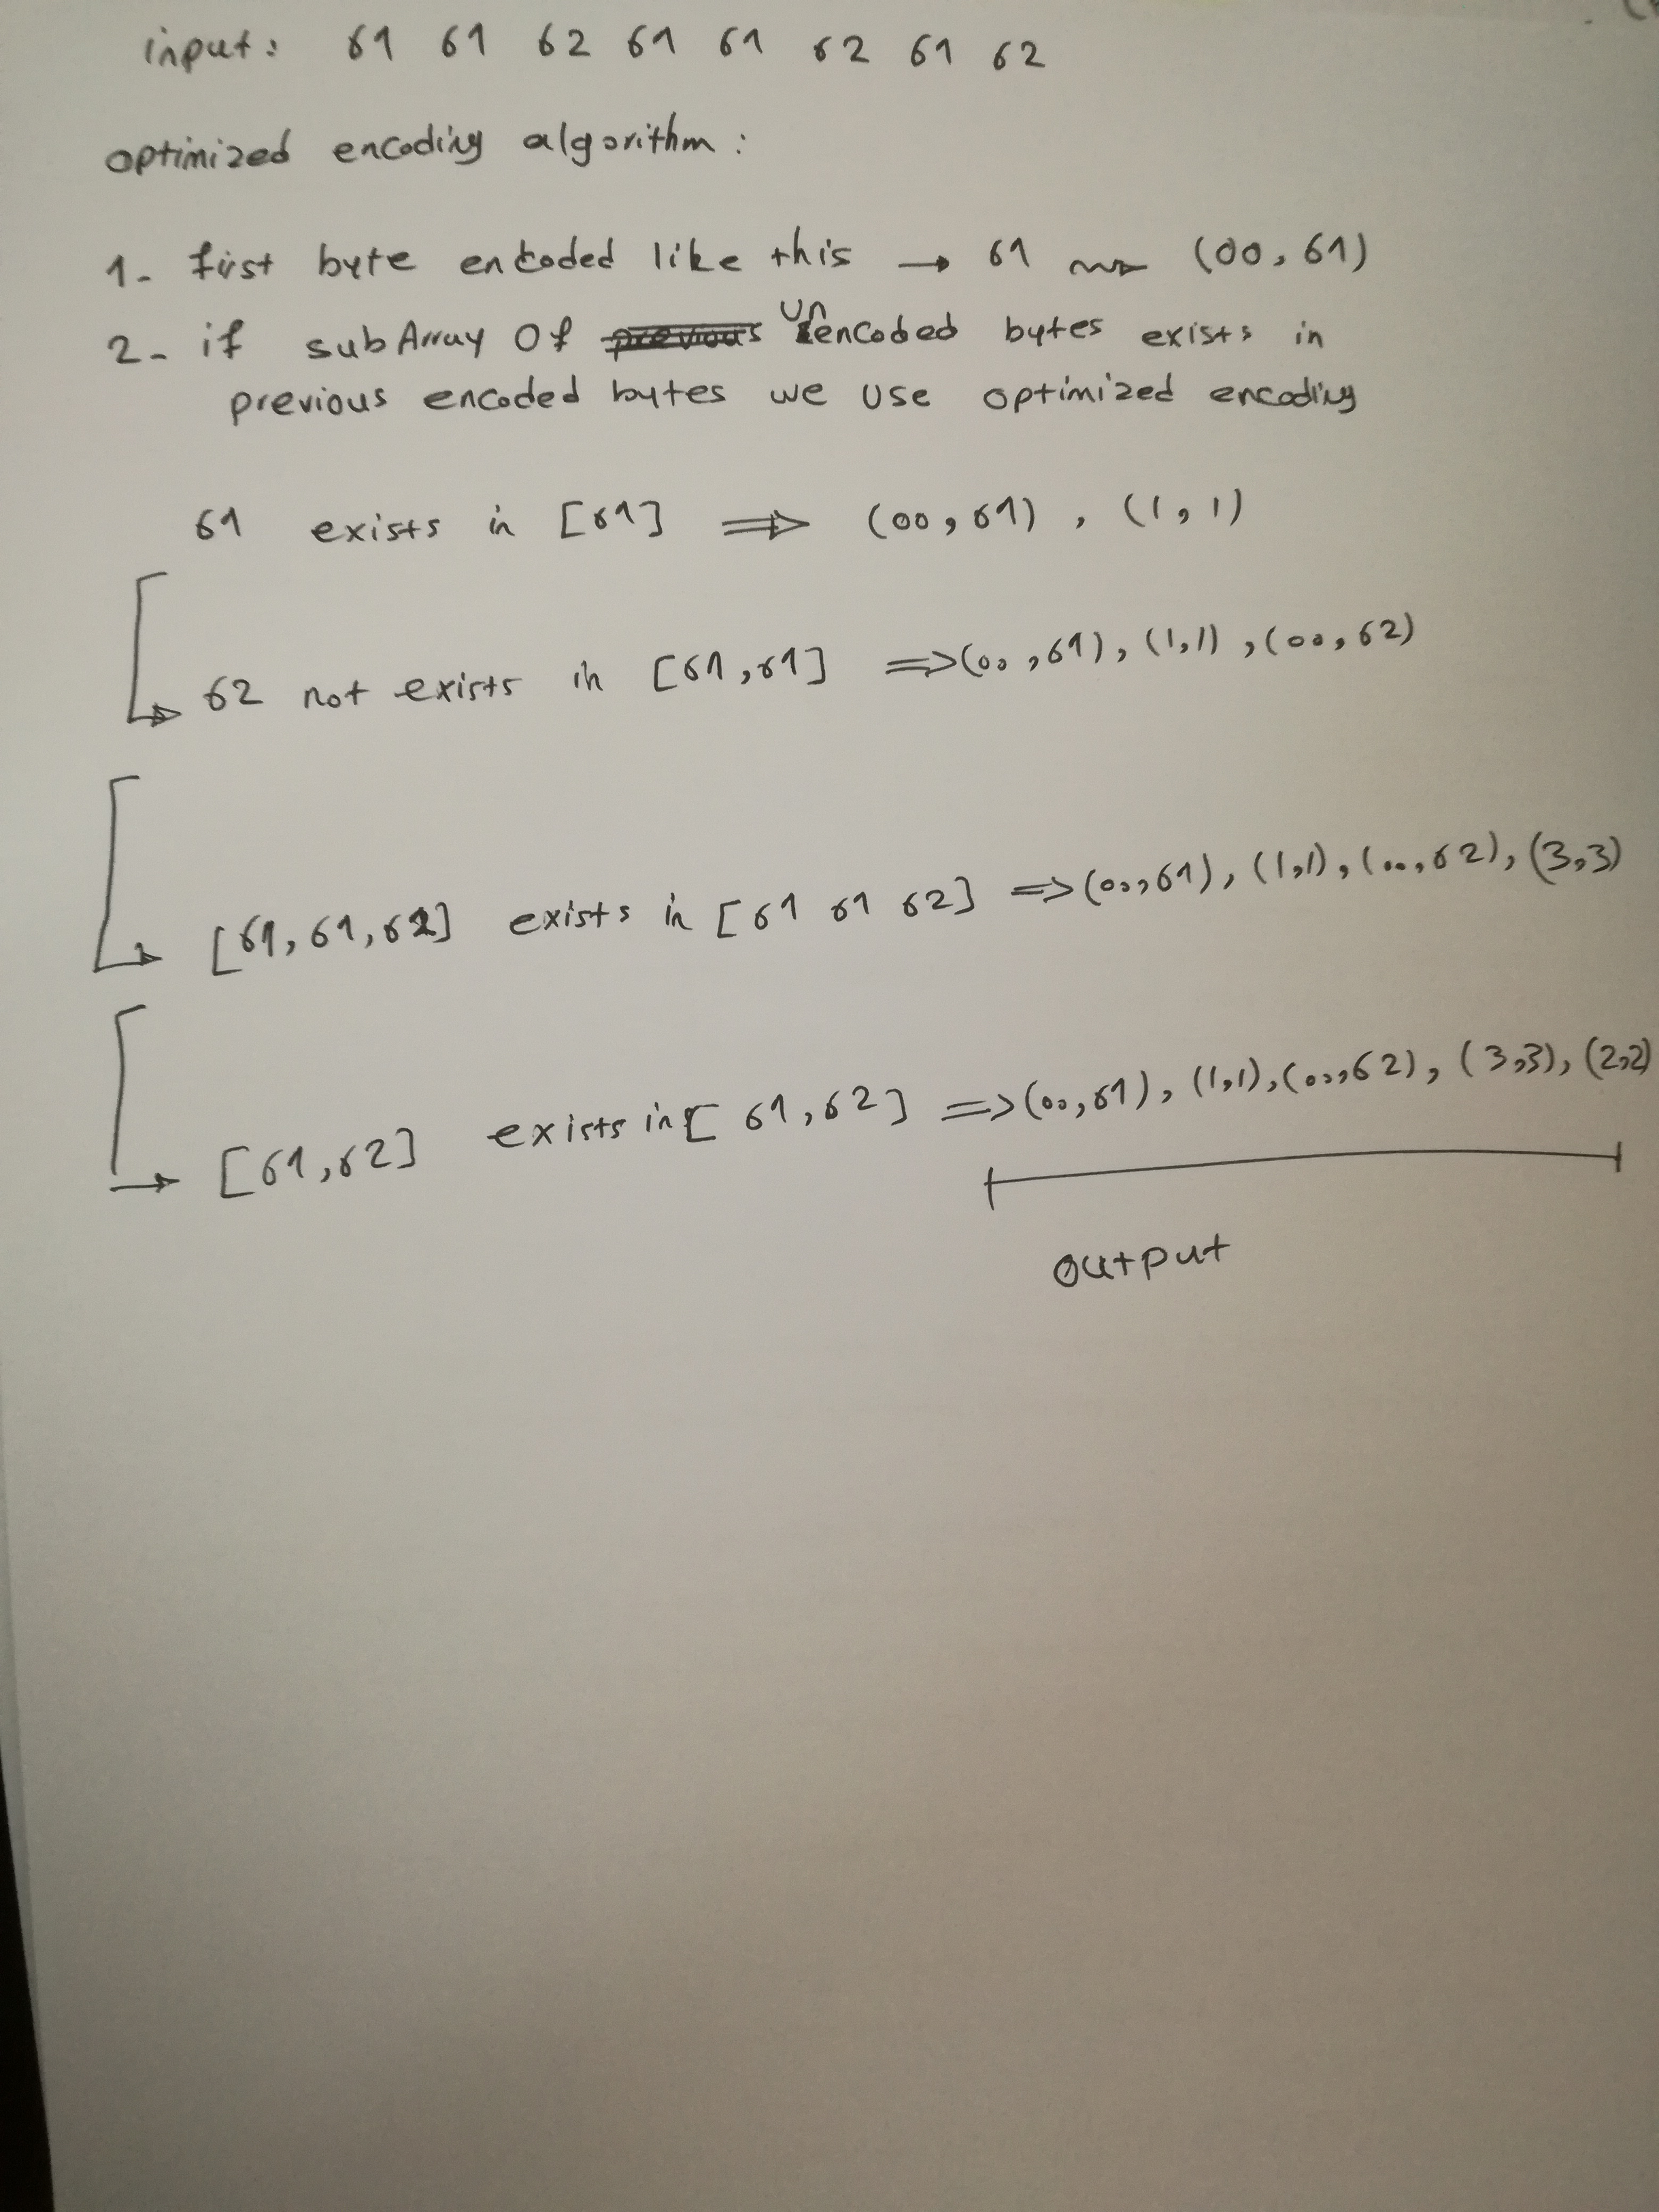 input: 61 61 62 61 61 62 61 62
optimized encoding algorithm:
1- first byte encoded like this → 61 ⇝ (00, 61)
2- if subArray Of unencoded bytes exists in
previous encoded bytes we use optimized encoding
61 exists in [61] ⇒ (00, 61), (1, 1)
62 not exists in [61, 61] ⇒ (00, 61), (1, 1), (00, 62)
[61, 61, 62] exists in [61 61 62] ⇒ (00, 61), (1, 1), (00, 62), (3, 3)
[61, 62] exists in [61, 62] ⇒ (00, 61), (1, 1), (00, 62), (3, 3), (2, 2)
output